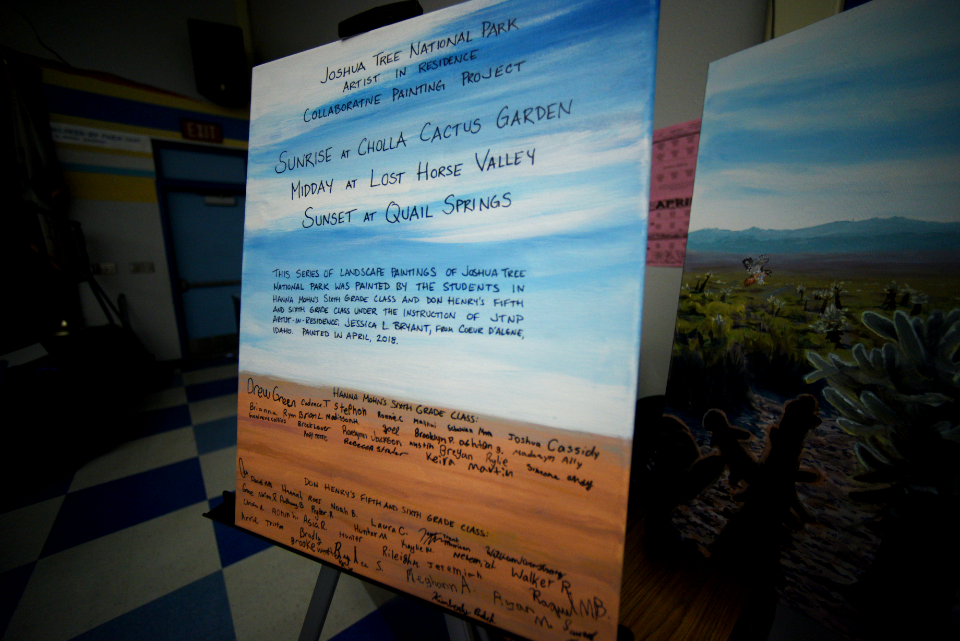 JOSHUA TREE NATIONAL PARK
ARTIST IN RESIDENCE
COLLABORATIVE PAINTING PROJECT
SUNRISE AT CHOLLA CACTUS GARDEN
MIDDAY AT LOST HORSE VALLEY
SUNSET AT QUAIL SPRINGS
THIS SERIES OF LANDSCAPE PAINTINGS OF JOSHUA TREE
NATIONAL PARK WAS PAINTED BY THE STUDENTS IN
HANNA MOHN'S SIXTH GRADE CLASS AND DON HENRY'S FIFTH
AND SIXTH GRADE CLASS UNDER THE INSTRUCTION OF JTNP
ARTIST-IN-RESIDENCE, JESSICA L BRYANT, FROM COEUR D'ALENE,
IDAHO. PAINTED IN APRIL, 2018.
HANNA MOHN'S SIXTH GRADE CLASS:
Drew Green Cadence T Stephon Ronnie C Joshua Cassidy
Brianna Ryan Brian L Madisont Joel Brooklyn P. ashton Madasyn Ally
Brick Laver Raelynn Jackson Austin Breyan Rylie Simone
Rebecca Strader Keira martin
DON HENRY'S FIFTH AND SIXTH GRADE CLASS:
Hannah Noah B. Laura C.
Ryder R. Hunter M. Kaylee M. Walker R.
Annie Bradly Hunter Rileigh Jeremiah Raquel M.B.
Brooke S. Meghann A. Ryan M.
Kimberly
EXIT
APRIL